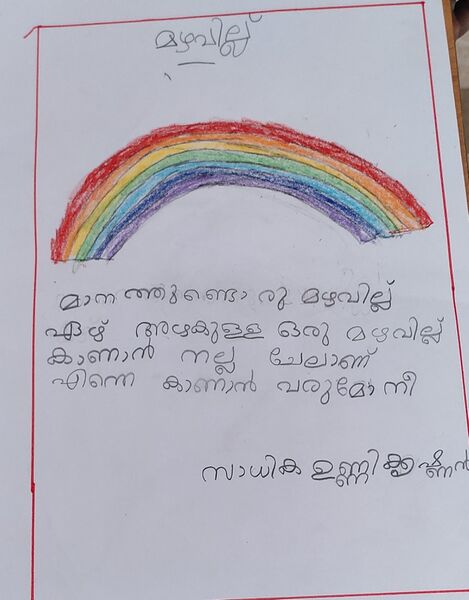 മഴവില്ല്
മാനത്തുണ്ടൊരു മഴവില്ല്
ഏഴ് അഴകുള്ള ഒരു മഴവില്ല്
കാണാൻ നല്ല ചേലാണ്
എന്നെ കാണാൻ വരുമോ നീ
സാധിക ഉണ്ണികൃഷ്ണൻ